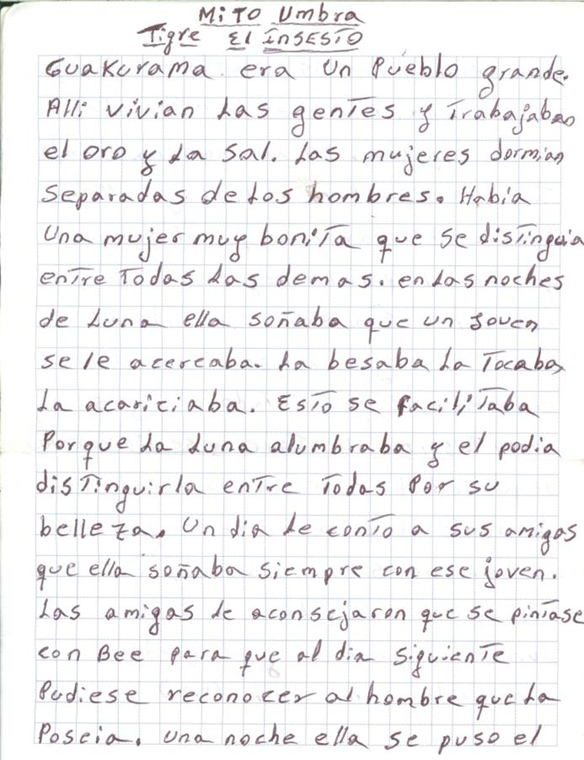 MiTO Umbra
Tigre El insesTo
Guakurama era un Pueblo grande.
Alli vivian Las genTes y Trabajaban
el oro y La Sal. Las mujeres dormian
Separadas de Los hombres. Habia
Una mujer muy boniTa que Se disTinguia
enTre Todas Las demas. en Las noches
de Luna ella soñaba que un Joven
se le acercaba. La besaba La Tocaba,
La acariciaba. EsTo se faciliTaba
Porque La Luna alumbraba y el podia
disTinguirla enTre Todas Por su
belleza. Un dia Le conTo a sus amigas
que ella soñaba Siempre con ese joven.
Las amigas Le aconsejaron que se pinTase
con Bee para que al dia SiguienTe
Pudiese reconocer al hombre que La
Poseia. Una noche ella se puso el